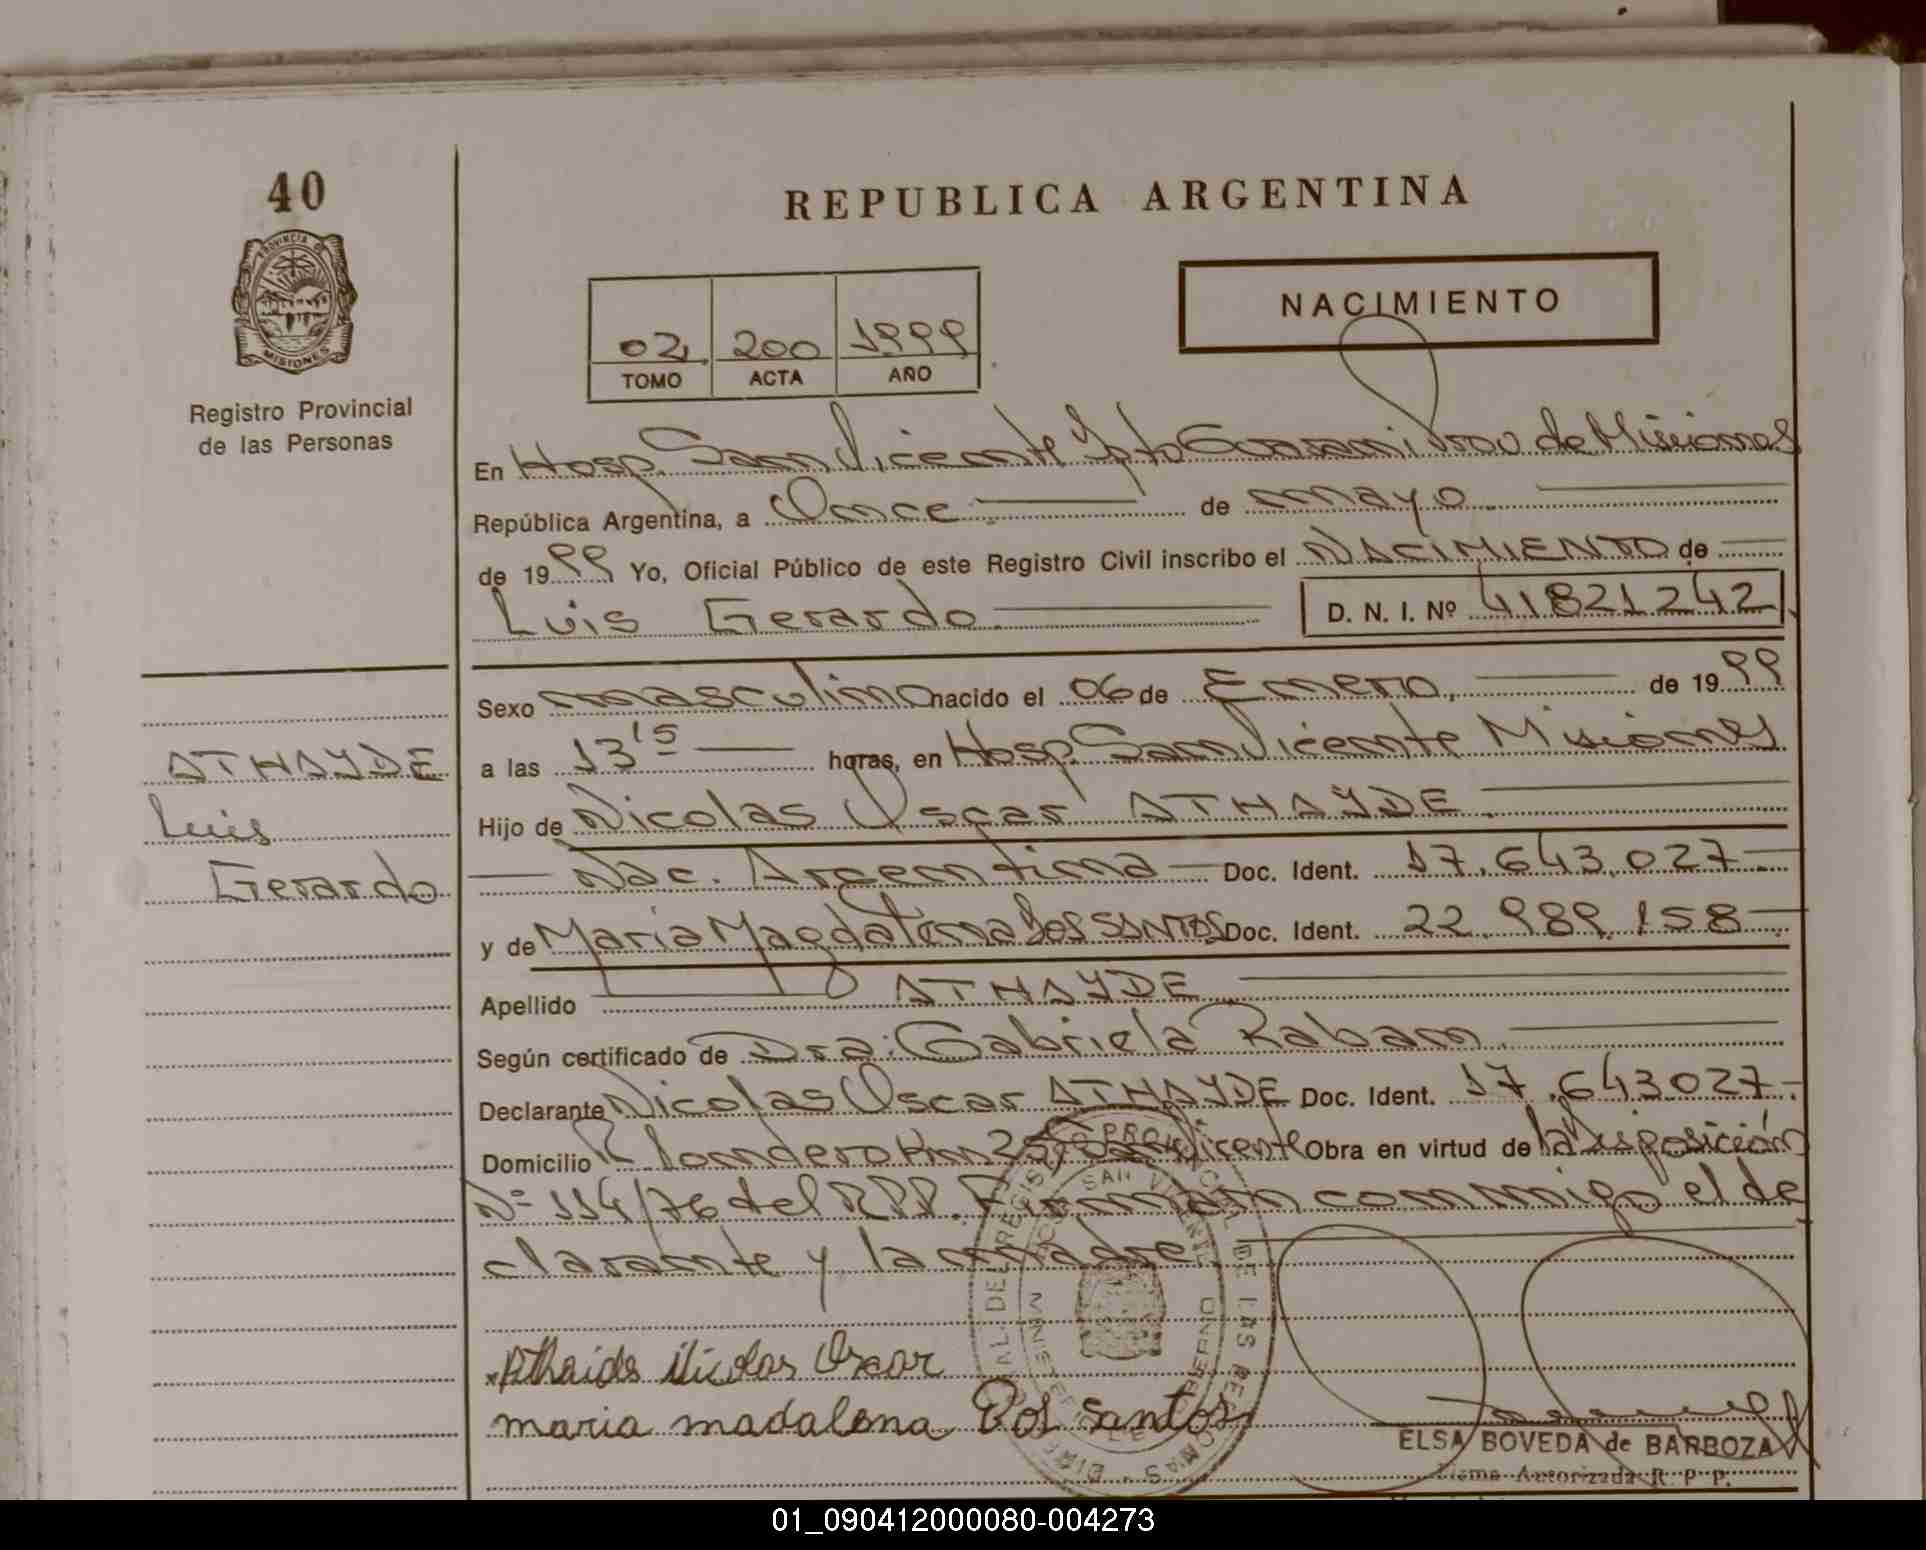 40
REPUBLICA ARGENTINA
PROVINCIA DE
MISIONES
NACIMIENTO
02 200 1999
TOMO ACTA AÑO
Registro Provincial
de las Personas
En Hosp. San Vicente Dpto Guarani Prov de Misiones
República Argentina, a Once de mayo
de 1999 Yo, Oficial Público de este Registro Civil inscribo el NACIMIENTO de
Luis Gerardo D. N. I. Nº 41821242
Sexo masculino nacido el 06 de Enero, de 1999
ATHAYDE
Luis
Gerardo
a las 13 15 horas, en Hosp. San Vicente Misiones
Hijo de Nicolas Oscar ATHAYDE
Nac. Argentina Doc. Ident. 17.643.027
y de Maria Magdalena Dos SANTOS Doc. Ident. 22.989.158
Apellido ATHAYDE
Según certificado de Dra. Gabriela Raban
Declarante Nicolas Oscar ATHAYDE Doc. Ident. 17.643.027
Domicilio Km 25, San Vicente Obra en virtud de la Disposición
Nº 114/76 del RPP. Firman conmigo el de
clarante y la madre
Athaide Nicolas Oscar
maria madalena Dos Santos
ELSA BOVEDA de BARBOZA
Firma Autorizada R. P. P.
01_090412000080-004273